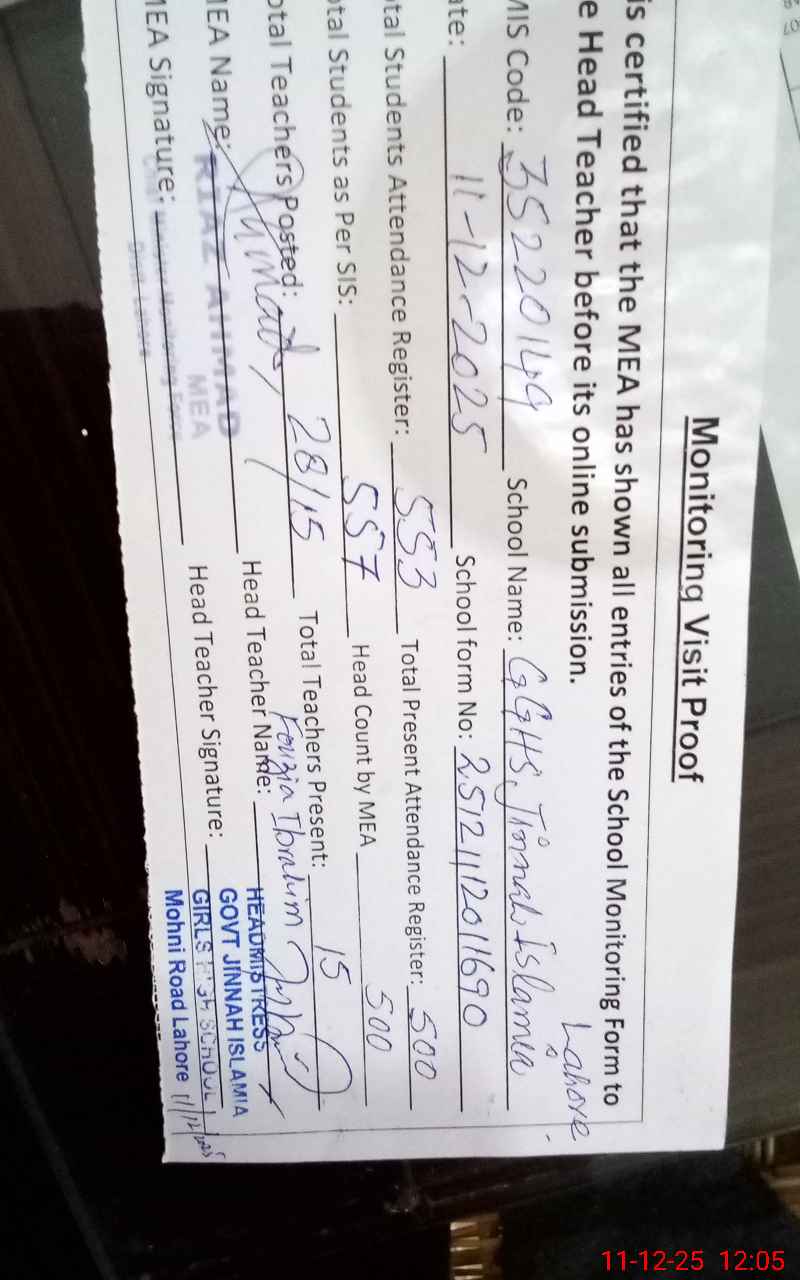 Monitoring Visit Proof
is certified that the MEA has shown all entries of the School Monitoring Form to
e Head Teacher before its online submission.
MIS Code: 35220149 School Name: GGHS Jinnah Islamia
Lahore
ate: 11-12-2025 School form No: 2512111201690
tal Students Attendance Register: 553 Total Present Attendance Register: 500
tal Students as Per SIS: 557 Head Count by MEA 500
otal Teachers Posted: 28/15 Total Teachers Present: 15
MEA Name: RIAZ AHMAD Head Teacher Name: Fouzia Ibrahim
MEA
MEA Signature: Head Teacher Signature:
Monitoring Force
Distt. Lahore
HEADMISTRESS
GOVT JINNAH ISLAMIA
GIRLS HIGH SCHOOL
Mohni Road Lahore 11/12/2025
11-12-25 12:05